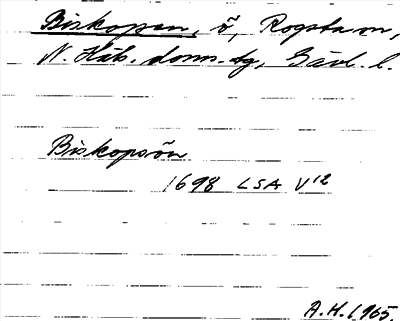 Biskopen, ö, Rogsta sn,
N. Häls. doms. tg, Gävl. l.
Biskopsön
1698 LSA V12
A.H. 1965.